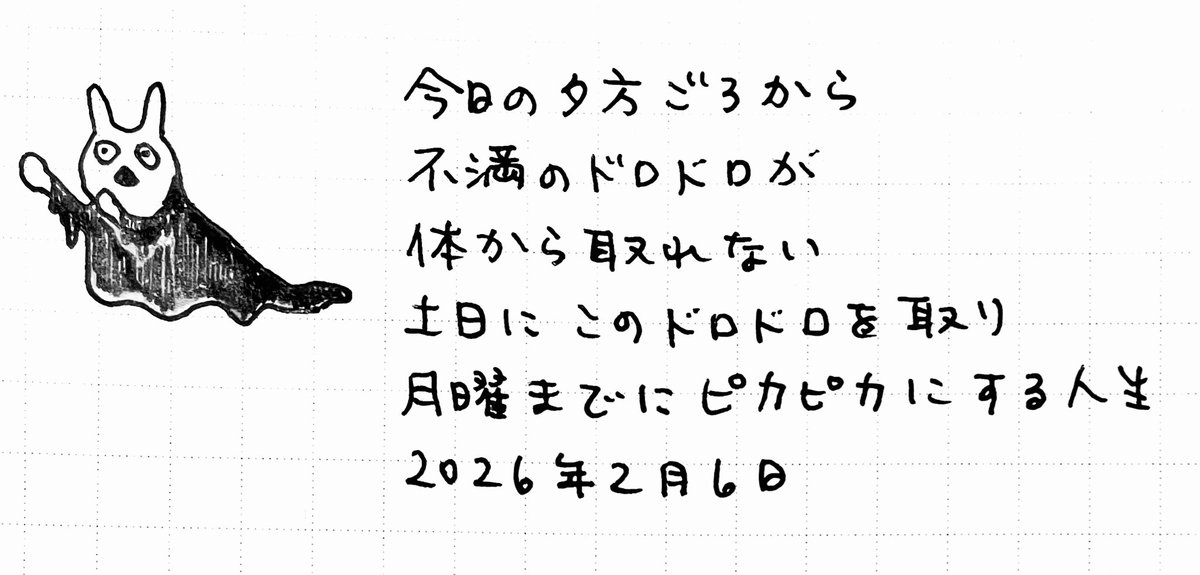 今日の夕方ごろから
不満のドロドロが
体から取れない
土日にこのドロドロを取り
月曜までにピカピカにする人生
2026年2月6日